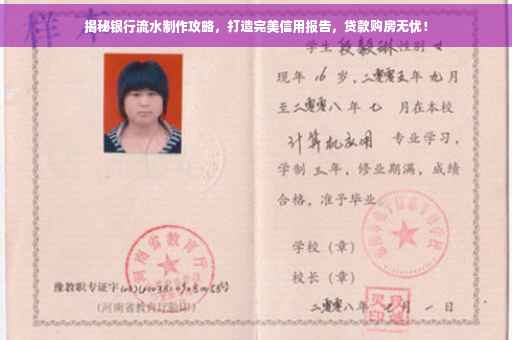 揭秘银行流水制作攻略，打造完美信用报告，贷款购房无忧！
样本
学生 段毅琳 性别 女
现年 16 岁，二零零五年 九 月
至二零零八年 七 月在本校
计算机应用 专业学习，
学制 三 年，修业期满，成绩
合格，准予毕业。
学校（章）
校长（章）
二零零八年 七 月 一 日
河南省教育厅
豫教职专证字
（河南省教育厅验印）